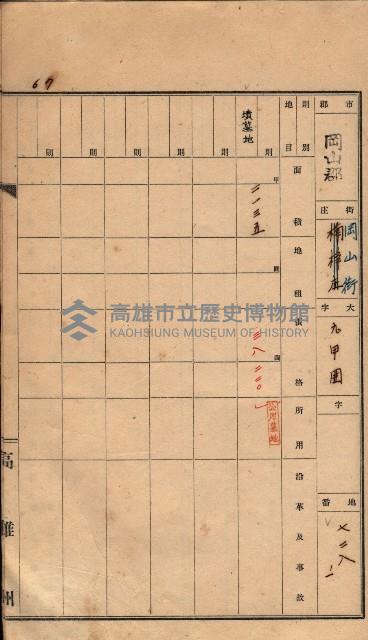 67
市郡
岡山郡
街庄
岡山街
楠梓庄
大字
九甲囲
字
地番
七二八
地目
則別
面積
地租
價格
所用
沿革及事故
墳墓地
則
則
則
則
則
則
則
甲
二一三五
圓
圓
三八二二〇
公用墓地
高雄州
高雄市立歷史博物館
KAOHSIUNG MUSEUM OF HISTORY